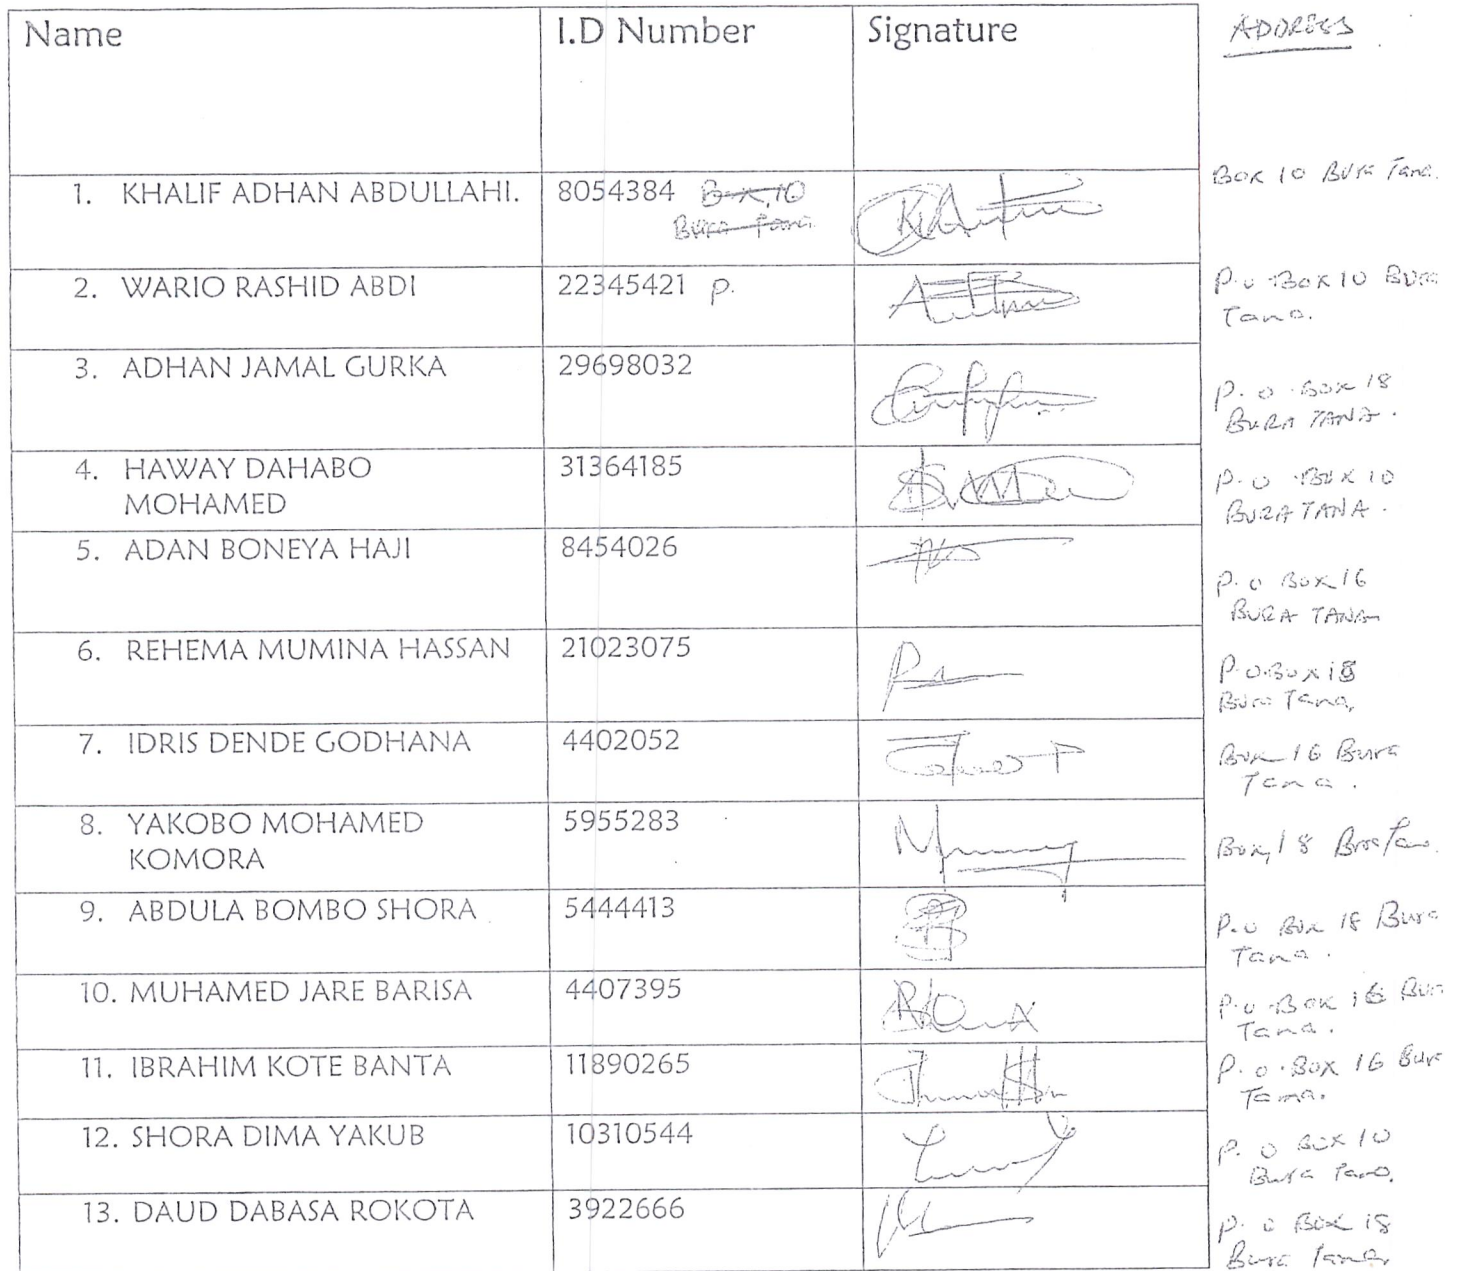 Name I.D Number Signature ADDRESS
1. KHALIF ADHAN ABDULLAHI. 8054384 Box 10 Box 10 Bura Tana.
Bura Tana
2. WARIO RASHID ABDI 22345421 p. P.o Box 10 Bura
Tana.
3. ADHAN JAMAL GURKA 29698032 P.o. Box 18
BURA TANA.
4. HAWAY DAHABO 31364185 P.o Box 10
MOHAMED BURA TANA.
5. ADAN BONEYA HAJI 8454026 P.o Box 16
BURA TANA
6. REHEMA MUMINA HASSAN 21023075 P.o.Box 18
Bura Tana,
7. IDRIS DENDE GODHANA 4402052 Box 16 Bura
Tana.
8. YAKOBO MOHAMED 5955283 Box 18 Bura Tana.
KOMORA
9. ABDULA BOMBO SHORA 5444413 P.o Box 18 Bura
Tana.
10. MUHAMED JARE BARISA 4407395 P.o.Box 16 Bura
Tana.
11. IBRAHIM KOTE BANTA 11890265 P.o.Box 16 Bura
Tana.
12. SHORA DIMA YAKUB 10310544 P.o Box 10
Bura Tana,
13. DAUD DABASA ROKOTA 3922666 P.o Box 18
Bura Tana,